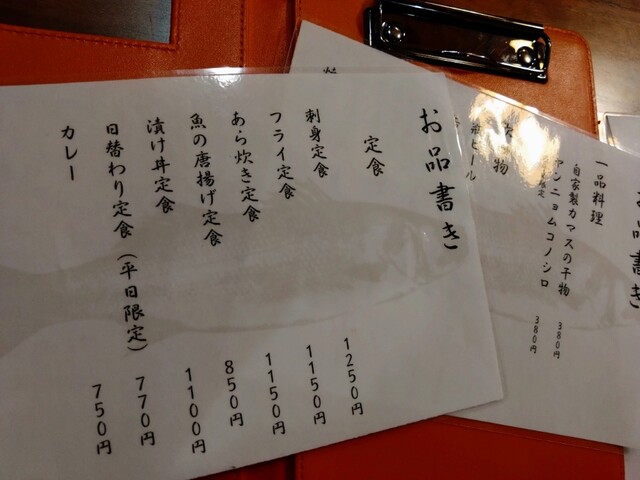 お品書き
定食
刺身定食 1250円
フライ定食 1150円
あら炊き定食 1150円
魚の唐揚げ定食 850円
漬け丼定食 1100円
日替わり定食(平日限定) 770円
カレー 750円
お品書き
一品料理
自家製カマスの干物 380円
ヤンニョムコノシロ 380円
物
ビール